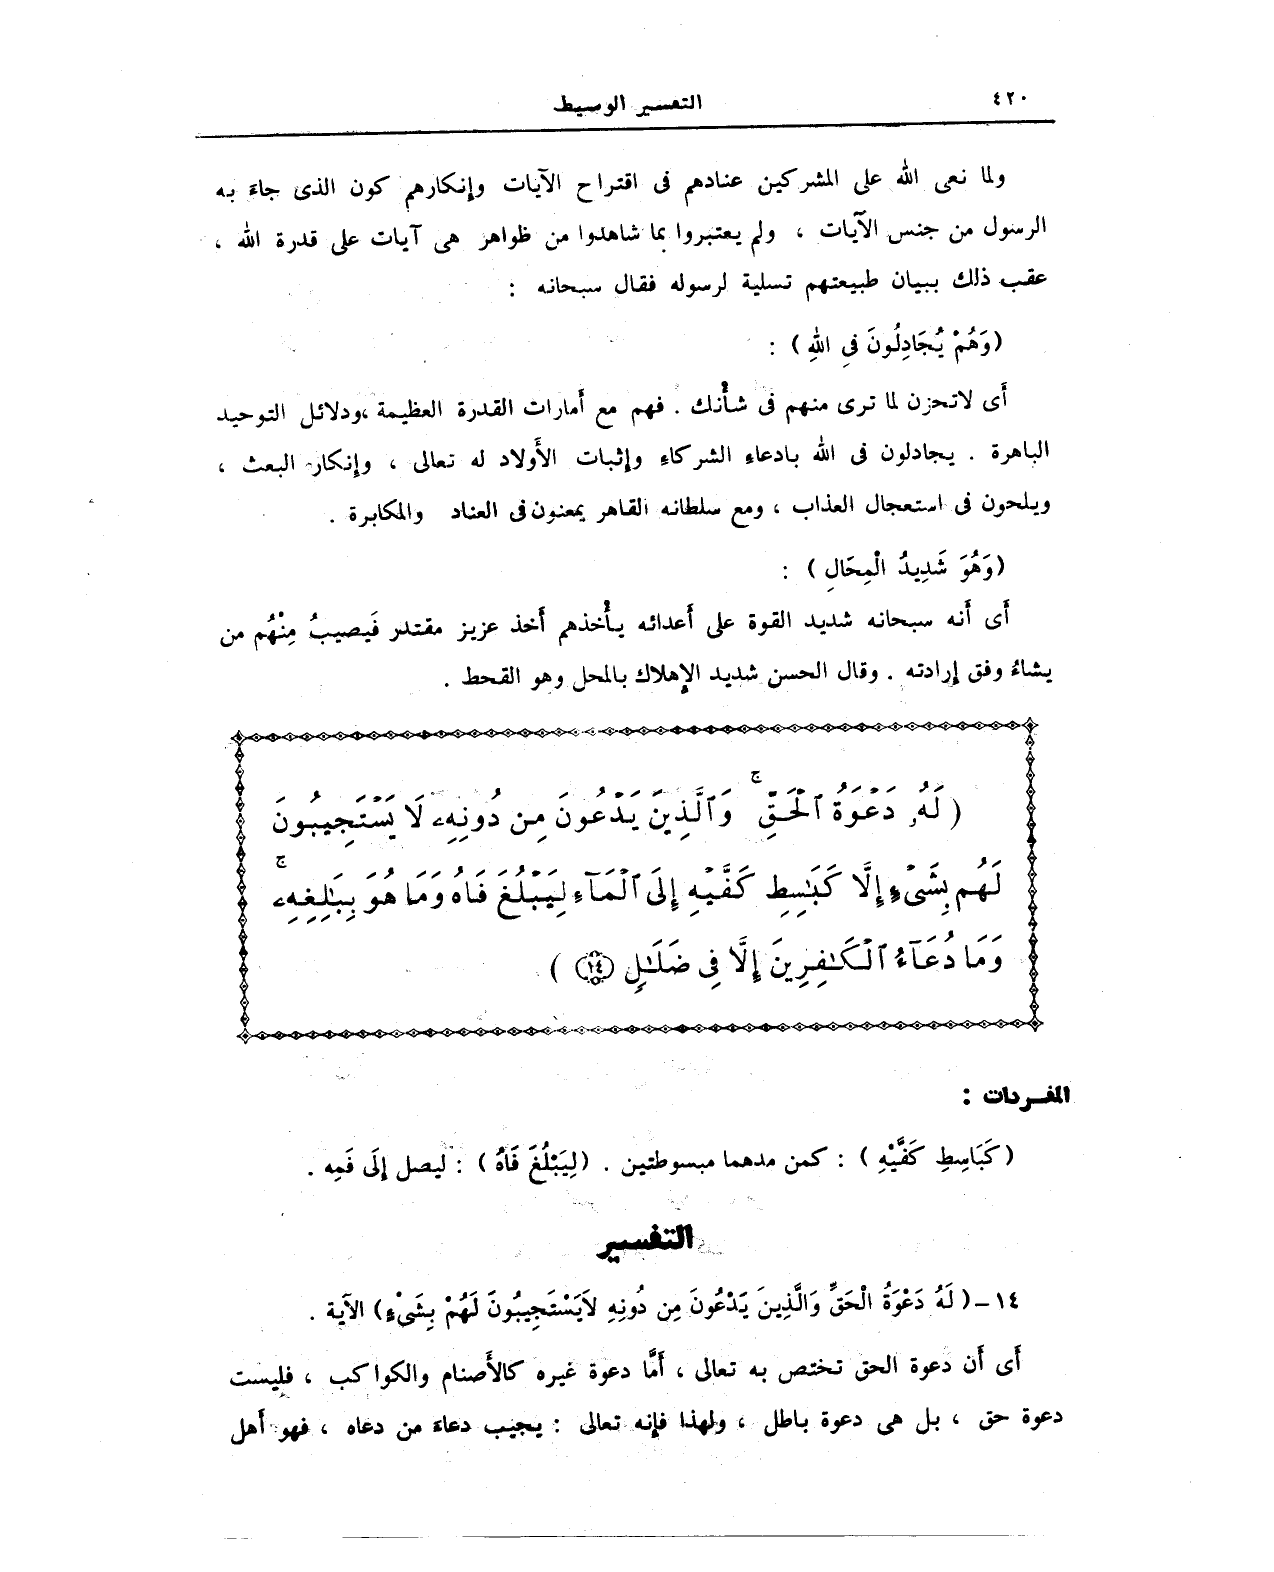 ٤٢٠
التفسير الوسيط
ولما نعى الله على المشركين عنادهم فى اقتراح الآيات وإنكارهم كون الذى جاءَ به
الرسول من جنس الآيات ، ولم يعتبروا بما شاهدوا من ظواهر هى آيات على قدرة الله ،
عقب ذلك ببيان طبيعتهم تسلية لرسوله فقال سبحانه :
(وَهُمْ يُجَادِلُونَ فِى اللهِ) :
أَى لاتحزن لما ترى منهم فى شأْنك . فهم مع أَمارات القدرة العظيمة ،ودلائل التوحيد
الباهرة . يجادلون فى الله بادعاءِ الشركاءِ وإثبات الأَولاد له تعالى ، وإنكار البعث ،
ويلحون فى استعجال العذاب ، ومع سلطانه القاهر يمعنون فى العناد والمكابرة .
(وَهُوَ شَدِيدُ الْمِحَالِ) :
أَى أَنه سبحانه شديد القوة على أَعدائه يأْخذهم أَخذ عزيز مقتدر فَيصيبُ مِنْهُم من
يشاءُ وفق إرادته . وقال الحسن شديد الإهلاك بالمحل وهو القحط .
( لَهُۥ دَعْوَةُ ٱلْحَقِّ ۚ وَٱلَّذِينَ يَدْعُونَ مِن دُونِهِۦ لَا يَسْتَجِيبُونَ
لَهُم بِشَىْءٍ إِلَّا كَبَـٰسِطِ كَفَّيْهِ إِلَى ٱلْمَآءِ لِيَبْلُغَ فَاهُ وَمَا هُوَ بِبَـٰلِغِهِۦ ۚ
وَمَا دُعَآءُ ٱلْكَـٰفِرِينَ إِلَّا فِى ضَلَـٰلٍ (١٤) )
المفردات :
(كَبَاسِطِ كَفَّيْهِ) : كمن مدهما مبسوطتين . (لِيَبْلُغَ فَاهُ) : ليصل إلَى فَمِه .
التفسير
١٤ – ( لَهُ دَعْوَةُ الْحَقِّ وَالَّذِينَ يَدْعُونَ مِن دُونِهِ لاَيَسْتَجِيبُونَ لَهُمْ بِشَىْءٍ) الآية .
أَى أَن دعوة الحق تختص به تعالى ، أَمَّا دعوة غيره كالأَصنام والكواكب ، فليست
دعوة حق ، بل هى دعوة باطل ، ولهذا فإنه تعالى : يجيب دعاءَ من دعاه ، فهو أَهل